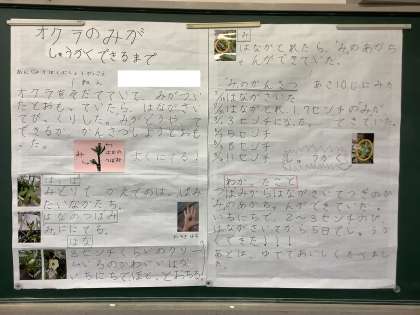 オクラのみが
しゅうかくできるまで
オクラをそだてていて、みがついた
とおもっていたら、はながさい
てびっくりした。みがどうやって
できるか、かんさつしようとおも
った。
み
はなの
つぼみ
よくにてるよ
はっぱ
みどりで、かえでのは
たいなかたち。
はなのつぼみ
みににてる。
はな
8センチくらいのクリー
ムいろのかわいいはな
いちにちで、ぽとっとおちる。
み
はながとれたら、みのあかち
ゃんができていた。
みのかんさつ あさ10じにみた
はながさいた
はながとれ、1,7センチのみが
3センチになった。 できていた。
5センチ
6センチ
11センチ しゅうかく
わかったこと
つぼみからはながさいてつぎのひ
みのあかちゃんができていた。
いちにちで、2〜3センチのび
はながさいてから5日でしゅうか
くできた!!!
あとは、ゆでておいしくたべまし
た。